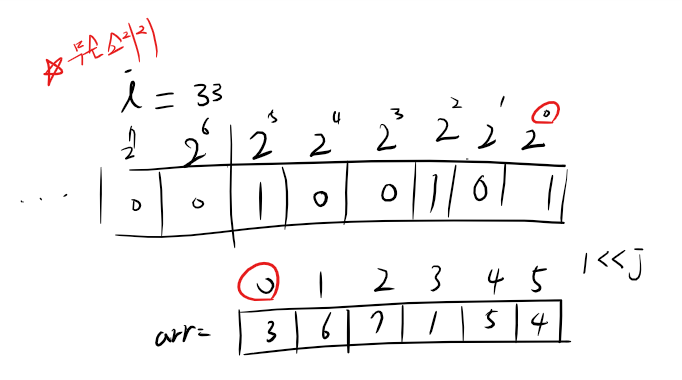 ☆ 무슨 소리리
i = 33
2⁷ 2⁶ 2⁵ 2⁴ 2³ 2² 2¹ 2⁰
... 0 0 1 0 0 1 0 1
0 1 2 3 4 5 1<<j
arr= 3 6 7 1 5 4